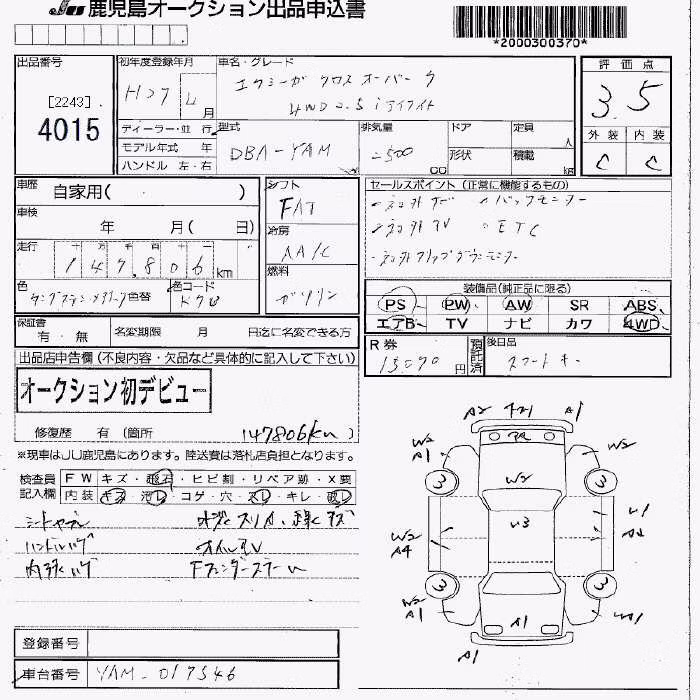 鹿児島オークション出品申込書
*2000300370*
出品番号
[2243]
4015
初年度登録年月
H27 4 月
車名・グレード
エクシーガ クロスオーバー7
4WD 2.5i アイサイト
評価点
3.5
外装 内装
C C
ディーラー・並行
モデル年式 年
ハンドル 左・右
型式
DBA-YAM
排気量
2500 cc
ドア
定員 人
形状
積載 kg
車歴 自家用( )
車検 年 月( 日)
走行 十 万 千 百 十 一
147,806 km
色
タングステンメタリック 色替
色コード
シフト
FAT
冷房
AA/C
燃料
ガソリン
セールスポイント (正常に機能するもの)
・社外ナビ ・バックモニター
・社外TV ・ETC
・社外フリップダウンモニター
装備品(純正品に限る)
PS PW AW SR ABS
エアB TV ナビ カワ 4WD
保証書 有・無
名変期限 月 日迄に名変できる方
R券
13070 円
預託済
後日品
スマートキー
出品店申告欄 (不良内容・欠品など具体的に記入して下さい)
オークション初デビュー
修復歴 有 (箇所 147806km)
※現車はJU鹿児島にあります。陸送費は落札店負担となります。
検査員記入欄
FW キズ・飛石・ヒビ割・リペア跡・X要
内装 キズ・汚レ・コゲ・穴・スレ・キレ・破レ
ハンドルハゲ
A2 A1
W2
A1
W2
A1
3 3
W2
U3
U1
W2
A4
3 3
W2
A1
A1
A1
登録番号
車台番号 YAM-017546